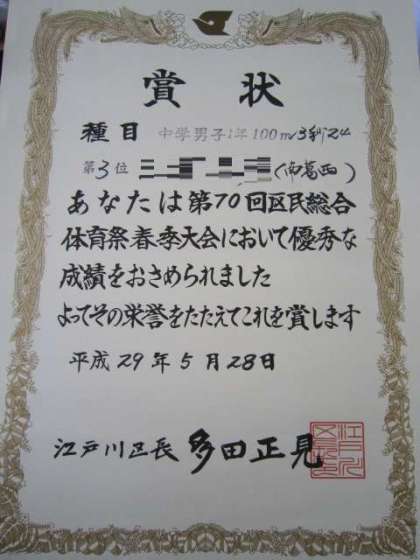 賞状
種目 中学男子1年100m 13秒24
第3位 (南葛西)
あなたは第70回区民総合
体育祭春季大会において優秀な
成績をおさめられました
よってその栄誉をたたえてこれを賞します
平成29年5月28日
江戸川区長 多田正見